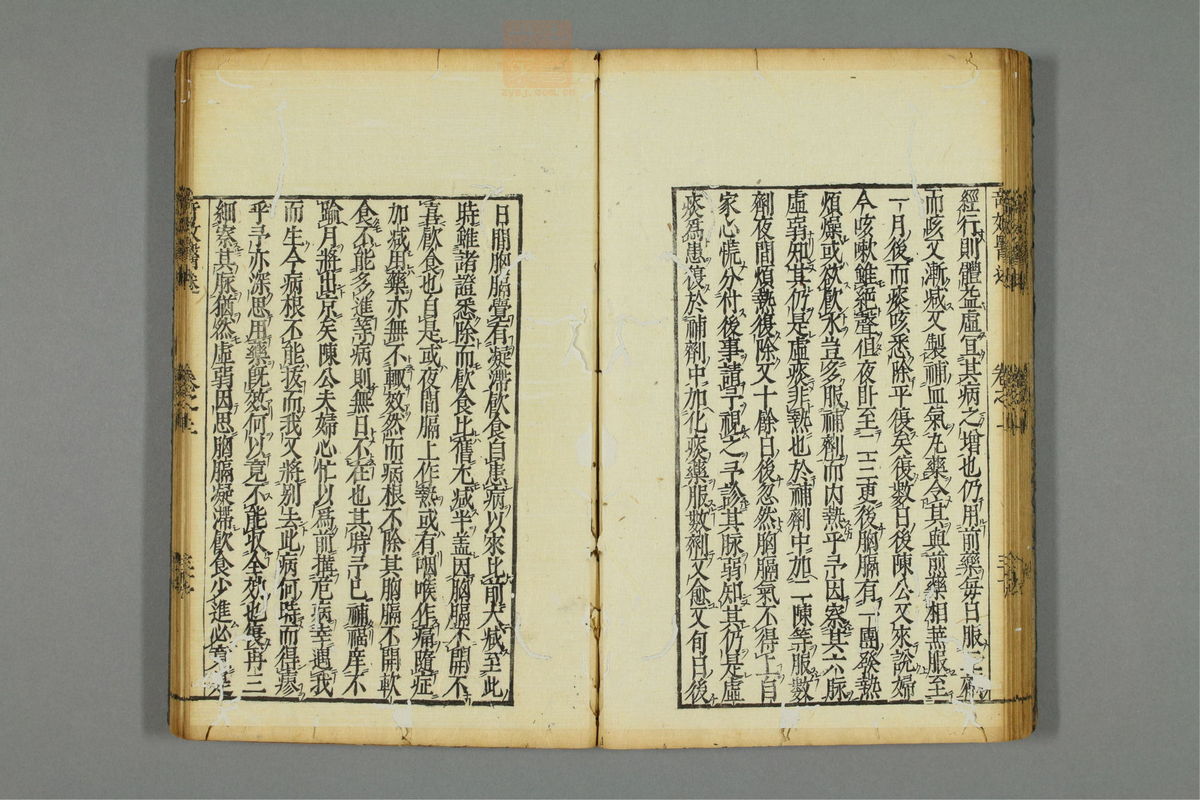 經行則體益虛宜其病之增也仍用前藥每日服二劑
而咳又漸減又製補血氣丸藥令其與前藥相兼服至
一月後而痰咳悉除平復矣復數日後陳公又來說婦
今咳嗽雖絕聲但夜卧至二三更後胸膈有一團發熱
煩燥或欲飲水豈多服補劑而內熱乎予因察其六脉
虛弱知其仍是虛痰非熱也於補劑中加二陳等服數
劑夜間煩熱復除又十餘日後忽然胸膈氣不得上自
家心慌分付後事請予視之予診其脉弱知其仍是虛
痰為患復於補劑中加化痰藥服數劑又愈又旬日後
日間胸膈覺有凝滯飲食自患病以來比前大減至此
時雖諸證悉除而飲食比舊尤減半盖因胸膈不開不
喜飲食也自是或夜間膈上作熱或有咽喉作痛隨症
加減用藥亦無不輒效然而病根不除其胸膈不開軟
食不能多進等病則無日不在也其時予已補福庠不
踰月將出京矣陳公夫婦心忙以為前攖危病幸遇我
而生今病根不能拔而我又將别去此病何時而得瘳
乎予亦深思用藥既效何以竟不能收全效也每再三
細察其脉猶然虛弱因思胸膈凝滯飲食少進必真是